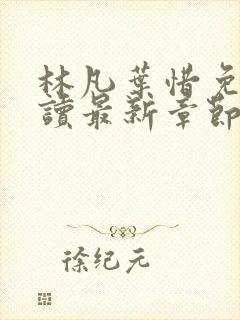 林凡葉惜免
讀最新章節
徐纪元